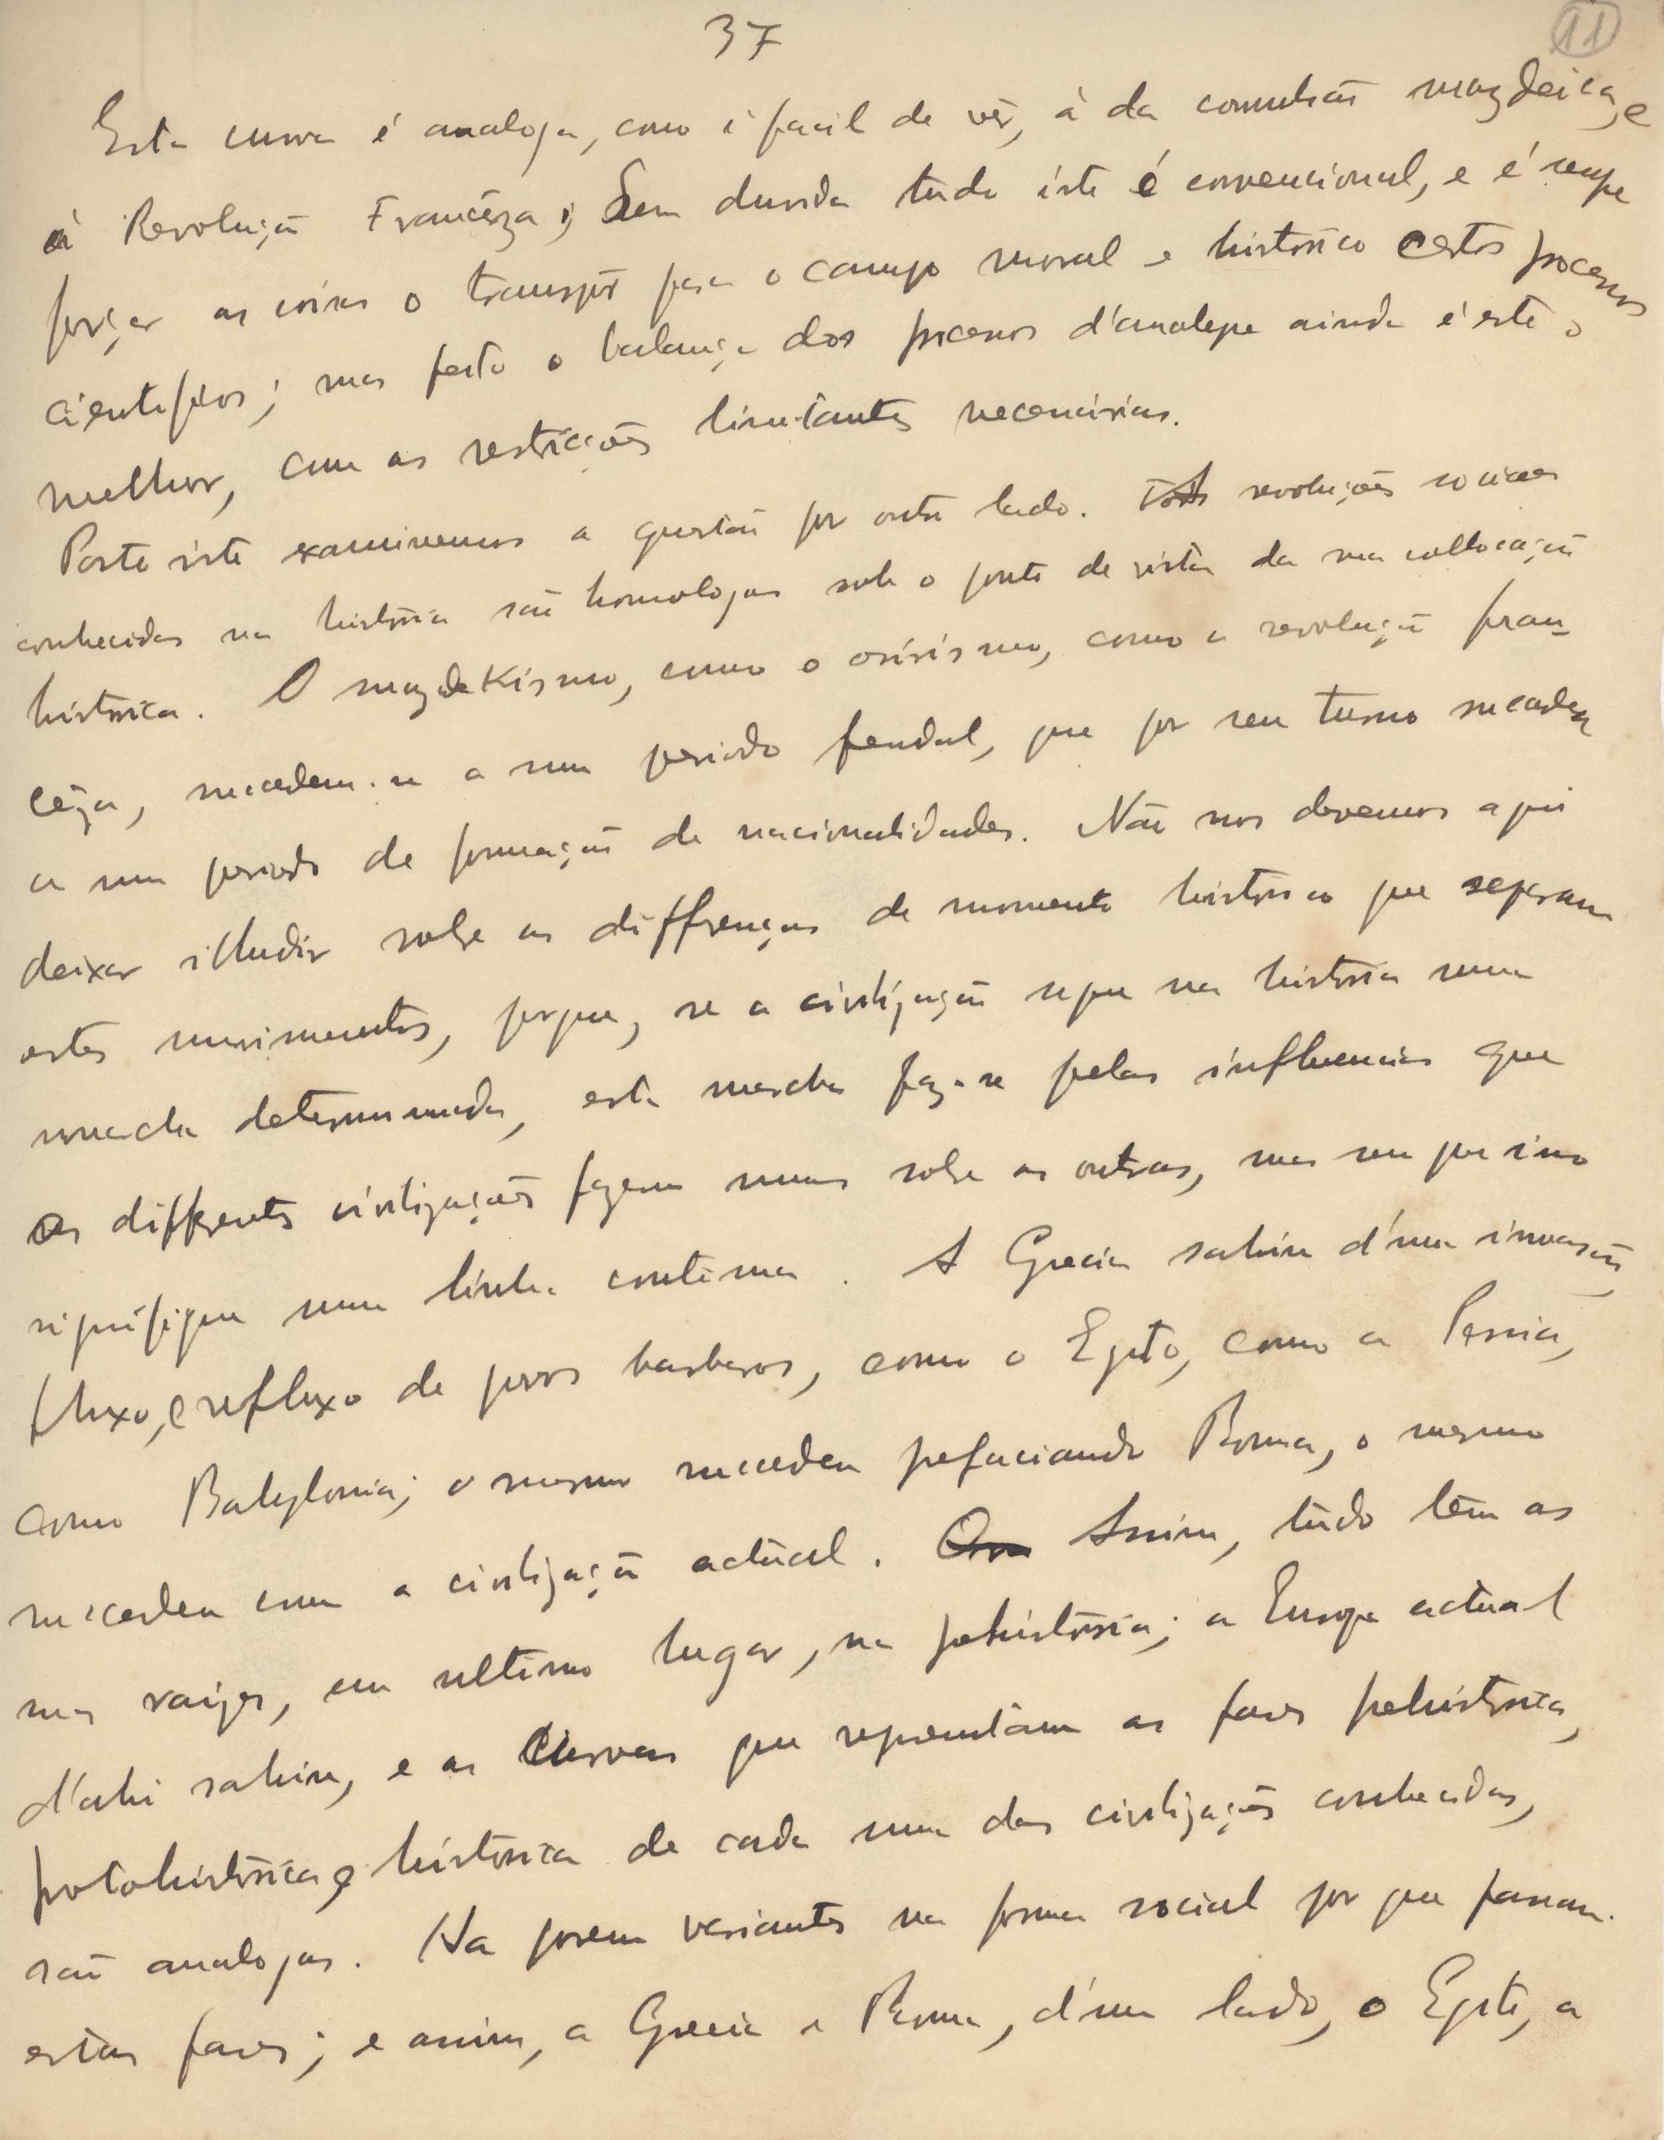 37
11
Esta curva é analoga, como é facil de vêr, à da comuhão mazdeica, e
á Revolução Francêza; Sem duvida tudo isto é convencional, e é sempre
forçar as coisas o transpôr para o campo moral e historico certos processos
cientificos; mas feito o balanço dos processos d'analogia ainda é este o
melhor, com as restricções limitantes necessárias.
Posto isto examinemos a questão por outro lado. As revoluções sociaes
conhecidas na história são homologas sob o ponto de vista da sua collocação
histórica. O mazdekismo, como o osirismo, como a revolução fran-
cêza, succedem-se a um periodo feudal, que por seu turno succedeu
a um periodo de formação de nacionalidades. Não nos devemos aqui
deixar illudir sobre as differenças de momento historico que separam
estes movimentos, porque, se a civilização segue na história uma
marcha determinada, esta marcha faz-se pelas influencias que
as differentes civilizações fazem umas sobre as outras, mas sem que isso
signifique uma linha continua. A Grecia sahiu d'uma invasão,
fluxo, e refluxo de povos barbaros, como o Egito, como a Persia,
como Babylonia; o mesmo succedeu prefaciando Roma, o mesmo
succedeu com a civilização actual. Ora Assim, tudo têm as
suas raizes, em ultimo lugar, na prehistória; a Europa actual
d'ahi sahiu, e as curvas que representam as fases prehistorica,
protohistórica, e historica de cada uma das civilizações conhecidas,
são analogas. Ha porem variantes na forma social por que passam
estas fases; e assim, a Grecia e Roma, d'um lado, o Egito, a